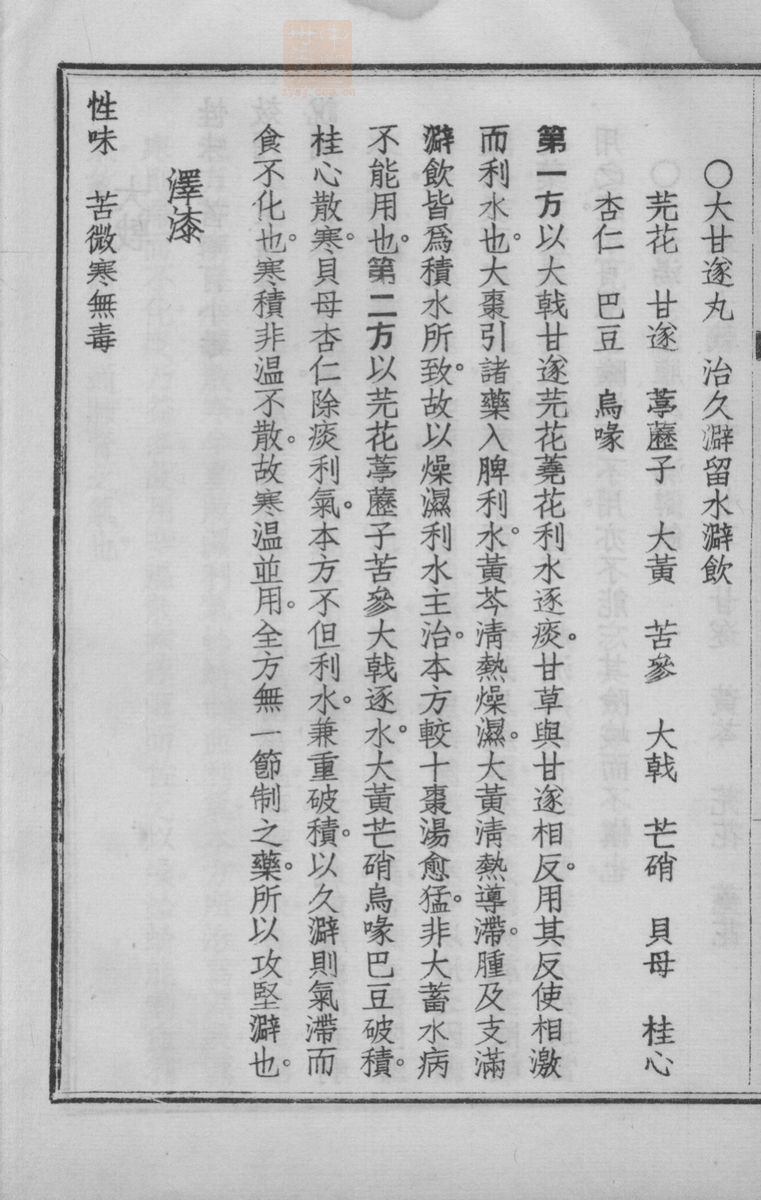 ○大甘遂丸　治久澼留水澼飲
芫花　甘遂　葶藶子　大黃　苦參　大戟　芒硝　貝母　桂心
杏仁　巴豆　烏喙
第一方以大戟甘遂芫花蕘花利水逐痰。甘草與甘遂相反。用其反使相激
而利水也。大棗引諸藥入脾利水。黃芩淸熱燥濕。大黃淸熱導滯。腫及支滿
澼飲皆爲積水所致。故以燥濕利水主治。本方較十棗湯愈猛。非大蓄水病
不能用也。第二方以芫花葶藶子苦參大戟逐水。大黃芒硝烏喙巴豆破積。
桂心散寒。貝母杏仁除痰利氣。本方不但利水。兼重破積。以久澼則氣滯而
食不化也。寒積非温不散。故寒温並用。全方無一節制之藥。所以攻堅澼也。
澤漆
性味　苦微寒無毒